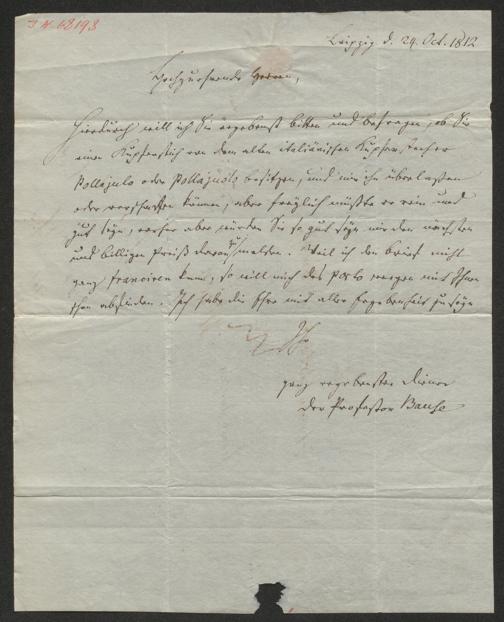 I N 68198
Leipzig d. 24. Oct. 1812
Hochzuehrende Herren,
Hierdurch will ich Sie ergebenst bitten und befragen, ob Sie
einen Kupferstich von dem alten italiänischen Kupferstecher
Pollajulo oder Pollajuolo besitzen, und mir ihn überlassen
oder verschaffen können, aber freylich müßte er rein und
gut seyn, vorher aber würden Sie so gut seyn mir den nächsten
und billigen Preiß davon zu melden. Weil ich den Brief nicht
ganz franciren kann, so will mich des porto wegen mit Ihnen
schon abfinden. Ich habe die Ehre mit aller Ergebenheit zu seyn
Ihr
ganz ergebenster Diener
der Professor Bause